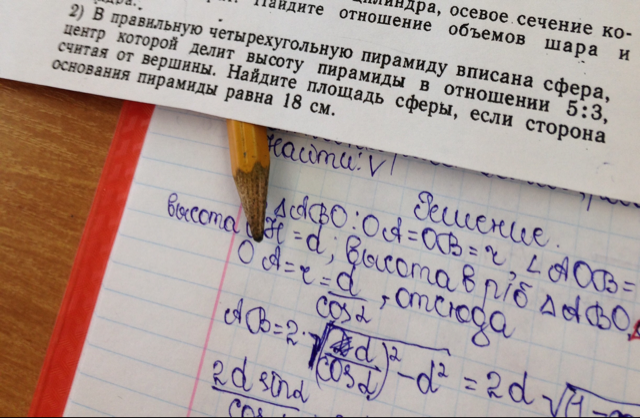 осевое сечение ко-
Найдите отношение объемов шара и
2) В правильную четырехугольную пирамиду вписана сфера,
центр которой делит высоту пирамиды в отношении 5:3,
считая от вершины. Найдите площадь сферы, если сторона
основания пирамиды равна 18 см.
найти: V
Решение.
△ABO: OA=OB=r, ∠AOB=
высота OH=d; высота в р/б △ABO,
OA=r=d/cosα, отсюда
AB=2·√((d/cosα)²-d²)=2d√1-
2d sinα
cos